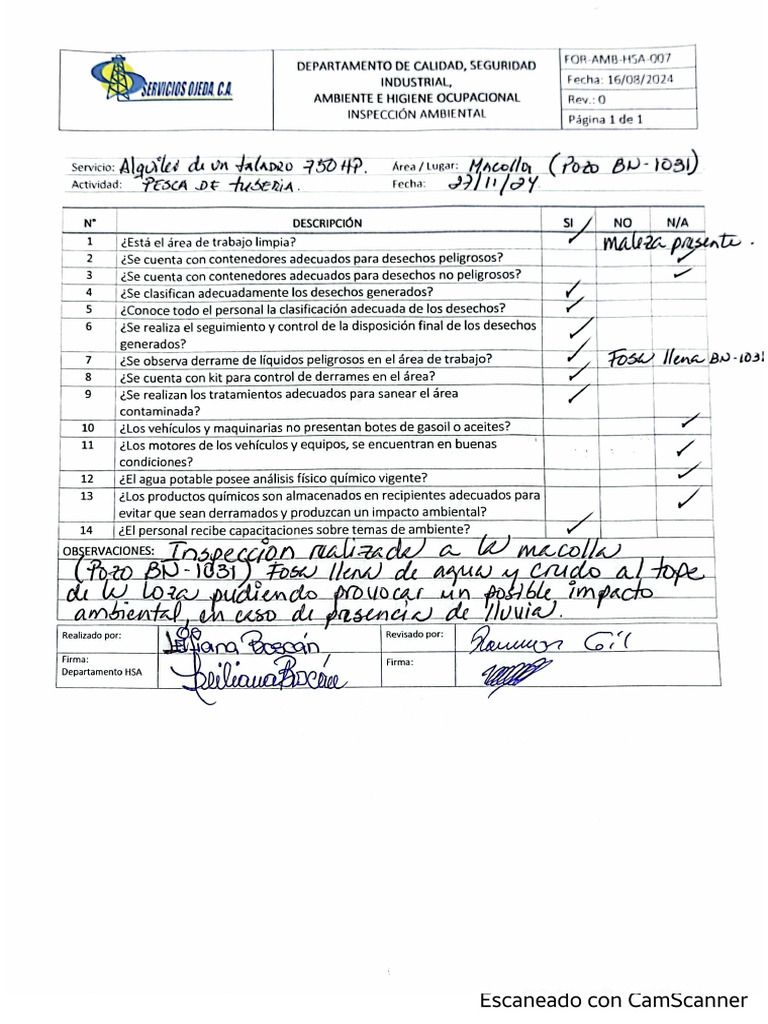 SERVICIOS OJEDA, C.A.
DEPARTAMENTO DE CALIDAD, SEGURIDAD
INDUSTRIAL,
AMBIENTE E HIGIENE OCUPACIONAL
INSPECCIÓN AMBIENTAL
FOR-AMB-HSA-007
Fecha: 16/08/2024
Rev.: 0
Página 1 de 1
Servicio: Alquiler de un taladro 750 HP. Área / Lugar: Macolla (Pozo BN-1031)
Actividad: PESCA DE tuberia. Fecha: 27/11/24
N° DESCRIPCIÓN SI NO N/A
1 ¿Está el área de trabajo limpia? ✓ maleza presente.
2 ¿Se cuenta con contenedores adecuados para desechos peligrosos? ✓
3 ¿Se cuenta con contenedores adecuados para desechos no peligrosos? ✓
4 ¿Se clasifican adecuadamente los desechos generados? ✓
5 ¿Conoce todo el personal la clasificación adecuada de los desechos? ✓
6 ¿Se realiza el seguimiento y control de la disposición final de los desechos
generados? ✓
7 ¿Se observa derrame de líquidos peligrosos en el área de trabajo? ✓ Fosa llena BN-1031
8 ¿Se cuenta con kit para control de derrames en el área? ✓
9 ¿Se realizan los tratamientos adecuados para sanear el área
contaminada? ✓
10 ¿Los vehículos y maquinarias no presentan botes de gasoil o aceites? ✓
11 ¿Los motores de los vehículos y equipos, se encuentran en buenas
condiciones? ✓
12 ¿El agua potable posee análisis físico químico vigente? ✓
13 ¿Los productos químicos son almacenados en recipientes adecuados para
evitar que sean derramados y produzcan un impacto ambiental? ✓
14 ¿El personal recibe capacitaciones sobre temas de ambiente? ✓
OBSERVACIONES: Inspección realizada a la macolla
(Pozo BN-1031) Fosa llena de agua y crudo al tope
de la loza pudiendo provocar un posible impacto
ambiental, en caso de presencia de lluvia.
Realizado por: Boscán Revisado por: Gil
Firma: Firma:
Departamento HSA
Escaneado con CamScanner